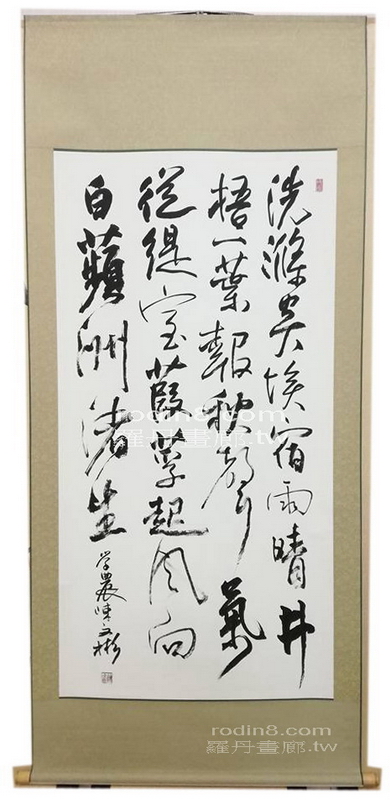 洗滌炎埃宿雨晴井
梧一葉報秋聲氣
從緹室葭莩起風向
白蘋洲渚生
学農陳文彬
rodin8.com
羅丹畫廊.tw
rodin8.com
羅丹畫廊.tw